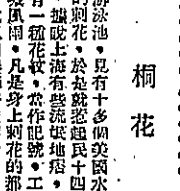 桐花
游泳池，見有十多個美國水
的刺花，於是就惹起民十四
據說上海有些流氓地痞，
有一種花紋，當作記號。工
凡是身上刺花的都